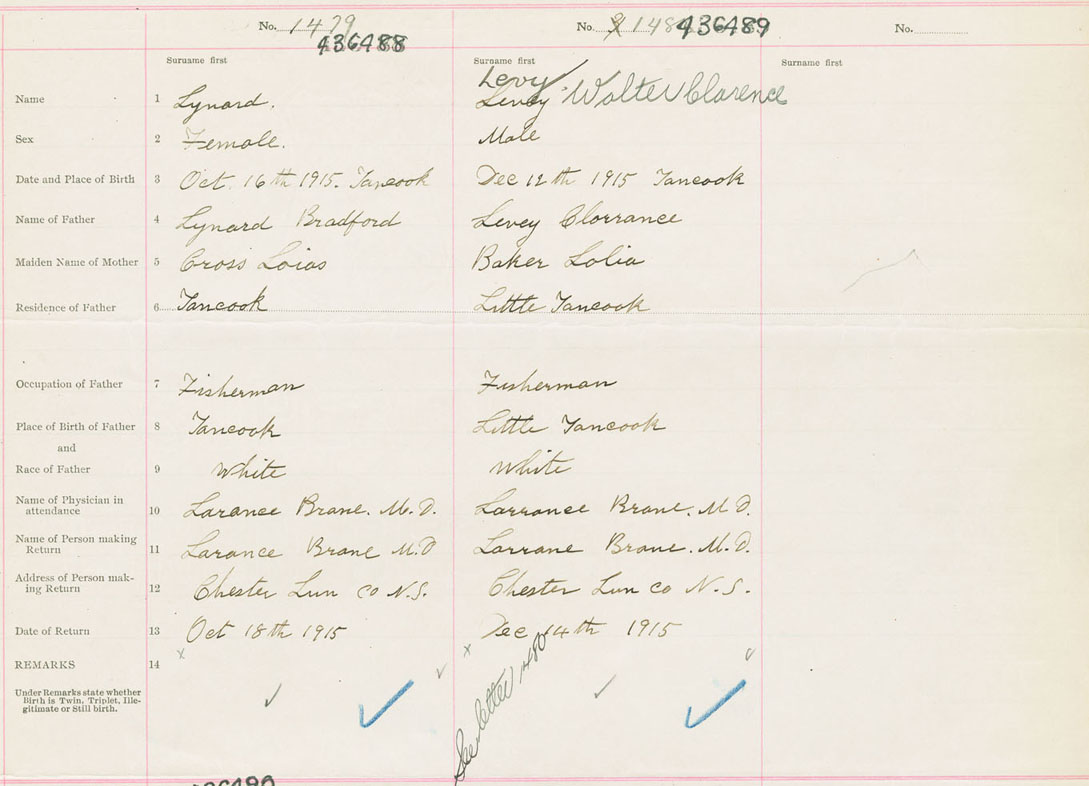 No. 1479 No. 148 No.
436488 436489
Surname first Surname first Surname first
Levy
Name 1 Lynard. Levey Walter Clarence
Sex 2 Female. Male
Date and Place of Birth 3 Oct. 16th 1915. Tancook Dec 12th 1915 Tancook
Name of Father 4 Lynard Bradford Levey Clorrance
Maiden Name of Mother 5 Cross Loias Baker Lolia
Residence of Father 6 Tancook Little Tancook
Occupation of Father 7 Fisherman Fisherman
Place of Birth of Father 8 Tancook Little Tancook
and
Race of Father 9 White White
Name of Physician in
attendance 10 Larance Brane. M.D. Larrance Brane. M.D.
Name of Person making
Return 11 Larance Brane M.D Larrane Brane. M.D.
Address of Person mak-
ing Return 12 Chester Lun co N.S. Chester Lun co N.S.
Date of Return 13 Oct 18th 1915 Dec 14th 1915
REMARKS 14 x x
Under Remarks state whether
Birth is Twin, Triplet, Ille-
gitimate or Still birth.
See letter 1480